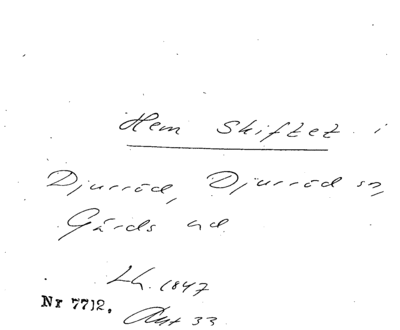 Hem Skiftet i
Djurröd, Djurröd sn,
Gärds hd
Lh. 1847
Nr 7712.
Ant 33